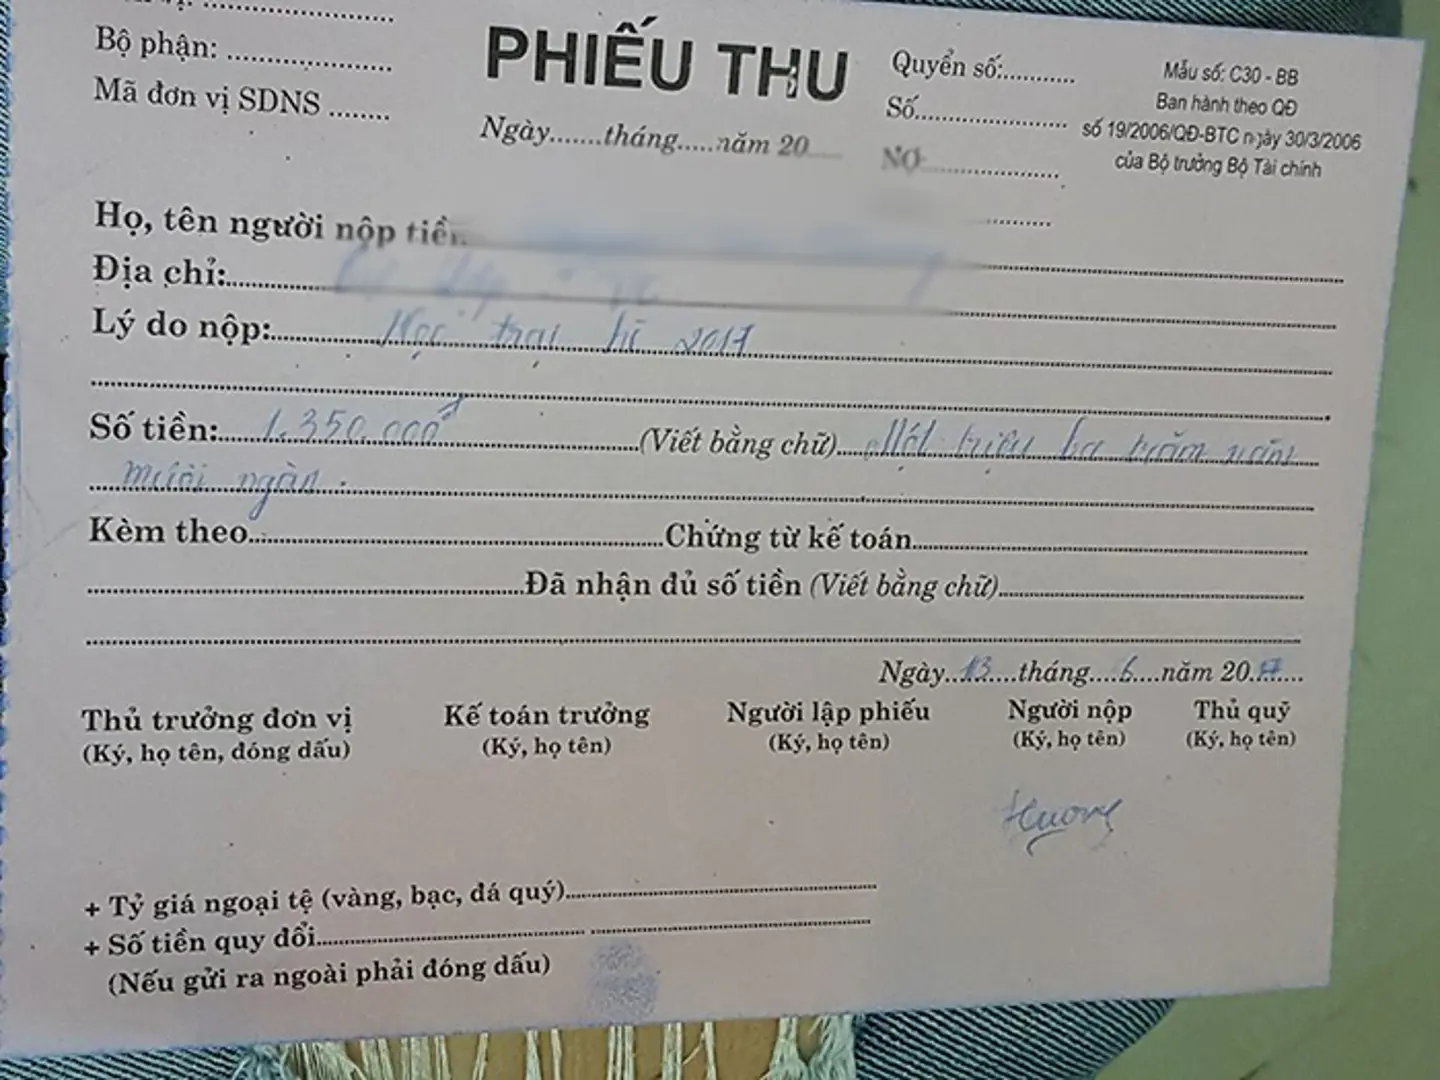 Bộ phận: ............
Mã đơn vị SDNS ........
PHIẾU THU
Ngày.......tháng.....năm 20
Quyển số:..........
Số....................
NỢ....................
Mẫu số: C30 - BB
Ban hành theo QĐ
số 19/2006/QĐ-BTC ngày 30/3/2006
của Bộ trưởng Bộ Tài chính
Họ, tên người nộp tiền
Địa chỉ:
Lý do nộp: Học trại hè 2017
Số tiền: 1.350.000đ (Viết bằng chữ) Một triệu ba trăm năm
mươi ngàn.
Kèm theo..............Chứng từ kế toán..............
..............Đã nhận đủ số tiền (Viết bằng chữ)..............
Ngày 13 tháng 6 năm 2017
Thủ trưởng đơn vị Kế toán trưởng Người lập phiếu Người nộp Thủ quỹ
(Ký, họ tên, đóng dấu) (Ký, họ tên) (Ký, họ tên) (Ký, họ tên) (Ký, họ tên)
Hương
+ Tỷ giá ngoại tệ (vàng, bạc, đá quý)..............
+ Số tiền quy đổi..............
(Nếu gửi ra ngoài phải đóng dấu)